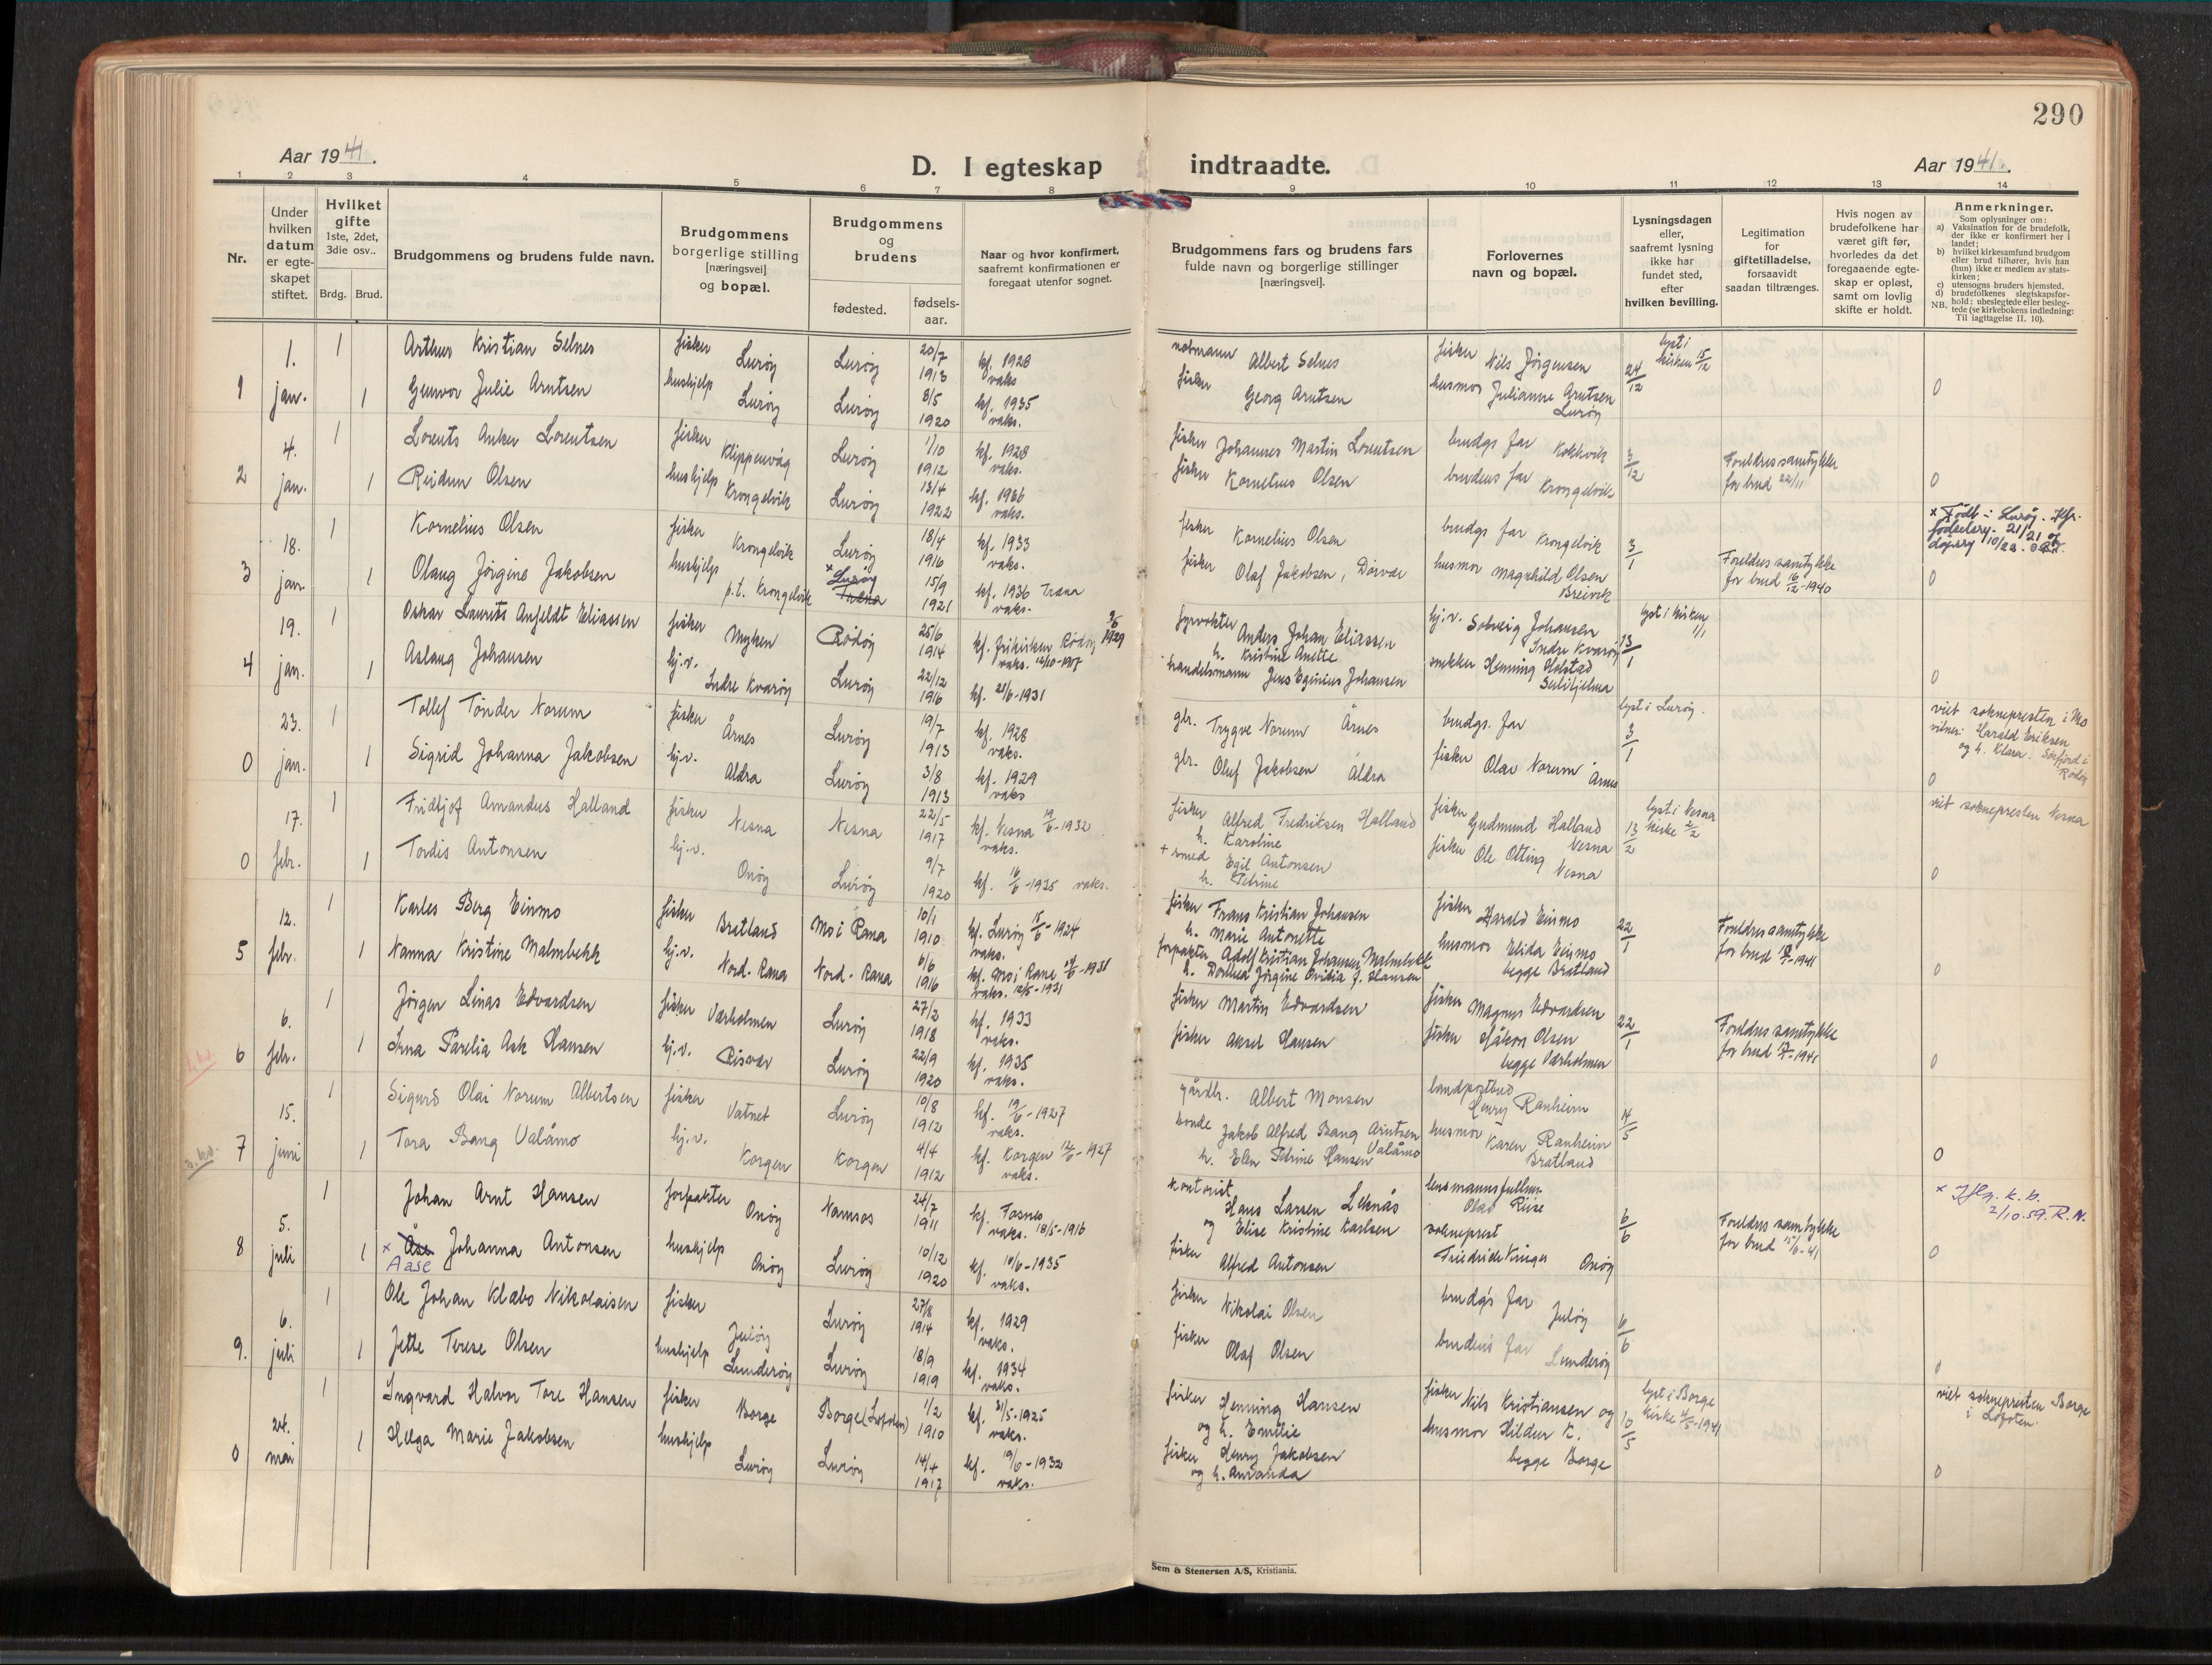 290
Aar 1941.
D. I egteskap indtraadte.
Aar 1941.
1 2 3 4 5 6 7 8 9 10 11 12 13 14
Nr.
Under hvilken datum er egteskapet stiftet.
Hvilket gifte 1ste, 2det, 3die osv..
Brdg. Brud.
Brudgommens og brudens fulde navn.
Brudgommens borgerlige stilling [næringsvei] og bopæl.
Brudgommens og brudens
fødested.
fødsels-aar.
Naar og hvor konfirmert, saafremt konfirmationen er foregaat utenfor sognet.
Brudgommens fars og brudens fars fulde navn og borgerlige stillinger [næringsvei].
Forlovernes navn og bopæl.
Lysningsdagen eller, saafremt lysning ikke har fundet sted, efter hvilken bevilling.
Legitimation for giftetilladelse, forsaavidt saadan tiltrænges.
Hvis nogen av brudefolkene har været gift før, hvorledes da det foregaaende egteskap er opløst, samt om lovlig skifte er holdt.
Anmerkninger.
Som oplysninger om:
a) Vaksination for de brudefolk, der ikke er konfirmert her i landet;
b) hvilket kirkesamfund brudgom eller brud tilhører, hvis han (hun) ikke er medlem av statskirken;
c) utensogns bruders hjemsted.
d) brudefolkenes slegtskapsforhold: ubeslegtede eller beslegtede (se kirkebokens indledning:
NB. Til iagttagelse II. 10).
1 1. jan. 1 Arthur Kristian Selnes fisker Lurøy Lurøy 20/7 1913 kf. 1928 vaks notmann Albert Selnes fisker Nils Jørgensen 24/12 lyst i kirken 15/12
1 Gunvor Julie Arntsen hushjelp Lurøy Lurøy 8/5 1920 kf. 1935 vaks. fisker Georg Arntsen husmor Julianne Arntsen Lurøy 0
2 4. jan. 1 Lorents Anker Lorentsen fisker Klippenvåg Lurøy 1/10 1912 kf. 1928 vaks. fisker Johannes Martin Lorentsen brudgs far Kokkvik 3/12 Foreldres samtykke for brud 22/11
1 Reidun Olsen hushjelp Krongelvik Lurøy 13/4 1922 kf. 1936 vaks. fisker Kornelius Olsen brudens far Krongelvik 0
3 18. jan. 1 Kornelius Olsen fisker Krongelvik Lurøy 18/4 1916 kf. 1933 vaks. fisker Kornelius Olsen brudgs far Krongelvik 3/1 Foreldres samtykke for brud 16/12-1940
x Født i Lurøy.
1 Olaug Jørgine Jakobsen hushjelp p.t. Krongelvik x Lurøy Træna 15/9 1921 kf. 1936 Træna vaks. fisker Olaf Jakobsen, Dørvær husmor Magnhild Olsen Breivik 0
4 19. jan. 1 Oskar Laurits Anfeldt Eliassen fisker Myken Rødøy 25/6 1914 kf. frikirken Rødøy 2/6 1929 vaks. 12/10-1917 fyrvokter Anders Johan Eliassen h. Kristine Anette hj.v. Solveig Johansen Indre Kvarøy 13/1 lyst i kirken 1/1
1 Aslaug Johansen hj.v. Indre Kvarøy Lurøy 22/12 1916 kf. 21/6-1931 handelsmann Jens Eginius Johansen snekker Henning Holstad Sulitjelma 0
0 23. jan. 1 Tollef Tønder Norum fisker Årnes Lurøy 19/7 1913 kf. 1928 vaks. gbr. Trygve Norum Årnes brudgs. far 3/1 lyst i Lurøy. viet sokneprest​en i Mo vitner: Harald Eriksen og h. Klara. Sørfjord i Rødøy
1 Sigrid Johanna Jakobsen hj.v. Aldra Lurøy 3/8 1913 kf. 1929 vaks gbr. Oluf Jakobsen Aldra fisker Olav Norum Årnes 0
0 17. febr. 1 Fridtjof Amandus Halland fisker Nesna Nesna 22/5 1917 kf. Nesna 19/6-1932 vaks. fisker Alfred Fredriksen Halland h. Karoline fisker Gudmund Halland Nesna 13/2 lyst i Nesna kirke 2/2 viet sokneprest​en Nesna
1 Tordis Antonsen hj.v. Onøy Lurøy 9/7 1920 kf. 16/6-1935 vaks. + smed Egil Antonsen h. Petrine fisker Ole Otting Nesna 0
5 12. febr. 1 Karles Berg Einmo fisker Bratland Mo i Rana 10/1 1910 kf. Lurøy 15/6-1924 vaks. fisker Frans Kristian Johansen h. Marie Antonette fisker Harald Einmo 22/1 Foreldres samtykke for brud -1941
1 Nanna Kristine Malmbekk hj.v. Nord-Rana Nord-Rana 6/6 1916 kf. Mo i Rana -1931 vaks. 12/5-1931 forpakter Adolf Kristian Johansen Malmbekk h. Dorthea Jørgine Ovidia f. Hansen husmor Elida Einmo begge Bratland 0
6 6. febr. 1 Jørgen Linas Edvardsen fisker Værholmen Lurøy 27/2 1918 kf. 1933 vaks. fisker Martin Edvardsen fisker Magnus Edvardsen 22/1 Foreldres samtykke for brud -1941
1 Parelia Ask Hansen hj.v. Risvær Lurøy 22/9 1920 kf. 1935 vaks. fisker Aksel Hansen fisker Håkon Olsen begge Værholmen 0
7 15. juni 1 Sigurd Olai Norum Albertsen fisker Vatnet Lurøy 10/8 1912 kf. 19/6-1927 vaks. gårdbr. Albert Monsen landpostbud Henry Ranheim 14/5
1 Tora Bang Valåmo hj.v. Korgen Korgen 4/4 1912 kf. Korgen 12/6-1927 vaks. bonde Jakob Alfred Bang Arntsen Valåmo h. Elen Petrine Hansen husmor Karen Ranheim Bratland 0
8 5. juli 1 Johan Arnt Hansen forpakter Onøy Namsos 24/7 1911 kf. Fosnes vaks. 18/5-1916 kontorist Hans Larsen Leknås og Elise Kristine Karlsen lensmannsfullm. Olav Riise 6/6 Foreldres samtykke for brud 15/6-41 x Iflg. k.b. 2/10.59. R.N.
1 x Åse Aase Johanna Antonsen hushjelp Onøy Lurøy 10/12 1920 kf. 16/6-1935 vaks. fisker Alfred Antonsen sokneprest Onøy 0
9. 6. juli 1 Ole Johan Klæbo Nikolaisen fisker Juløy Lurøy 27/8 1914 kf. 1929 vaks. fisker Nikolai Olsen brudg's far Juløy 6/6
1 Jette Terese Olsen hushjelp Lunderøy Lurøy 18/9 1919 kf. 1934 vaks. fisker Olaf Olsen brudens far Lunderøy 0
0 24. mai 1 Ingvard Halvor Tore Hansen fisker Borge Borge (Lofoten) 1/2 1910 kf. 31/5-1925 vaks. fisker Henning Hansen og h. Emilie fisker Nils Kristiansen og 10/5 lyst i Borge kirke 4/5-1941 viet sokneprest​en Borge i Lofoten.
1 Helga Marie Jakobsen hushjelp Lurøy Lurøy 14/4 1917 kf. 19/6-1932 vaks. fisker Henry Jakobsen og h. Amanda husmor Hildur K. begge Borge 0
Sem & Stenersen A/S, Kristiania.